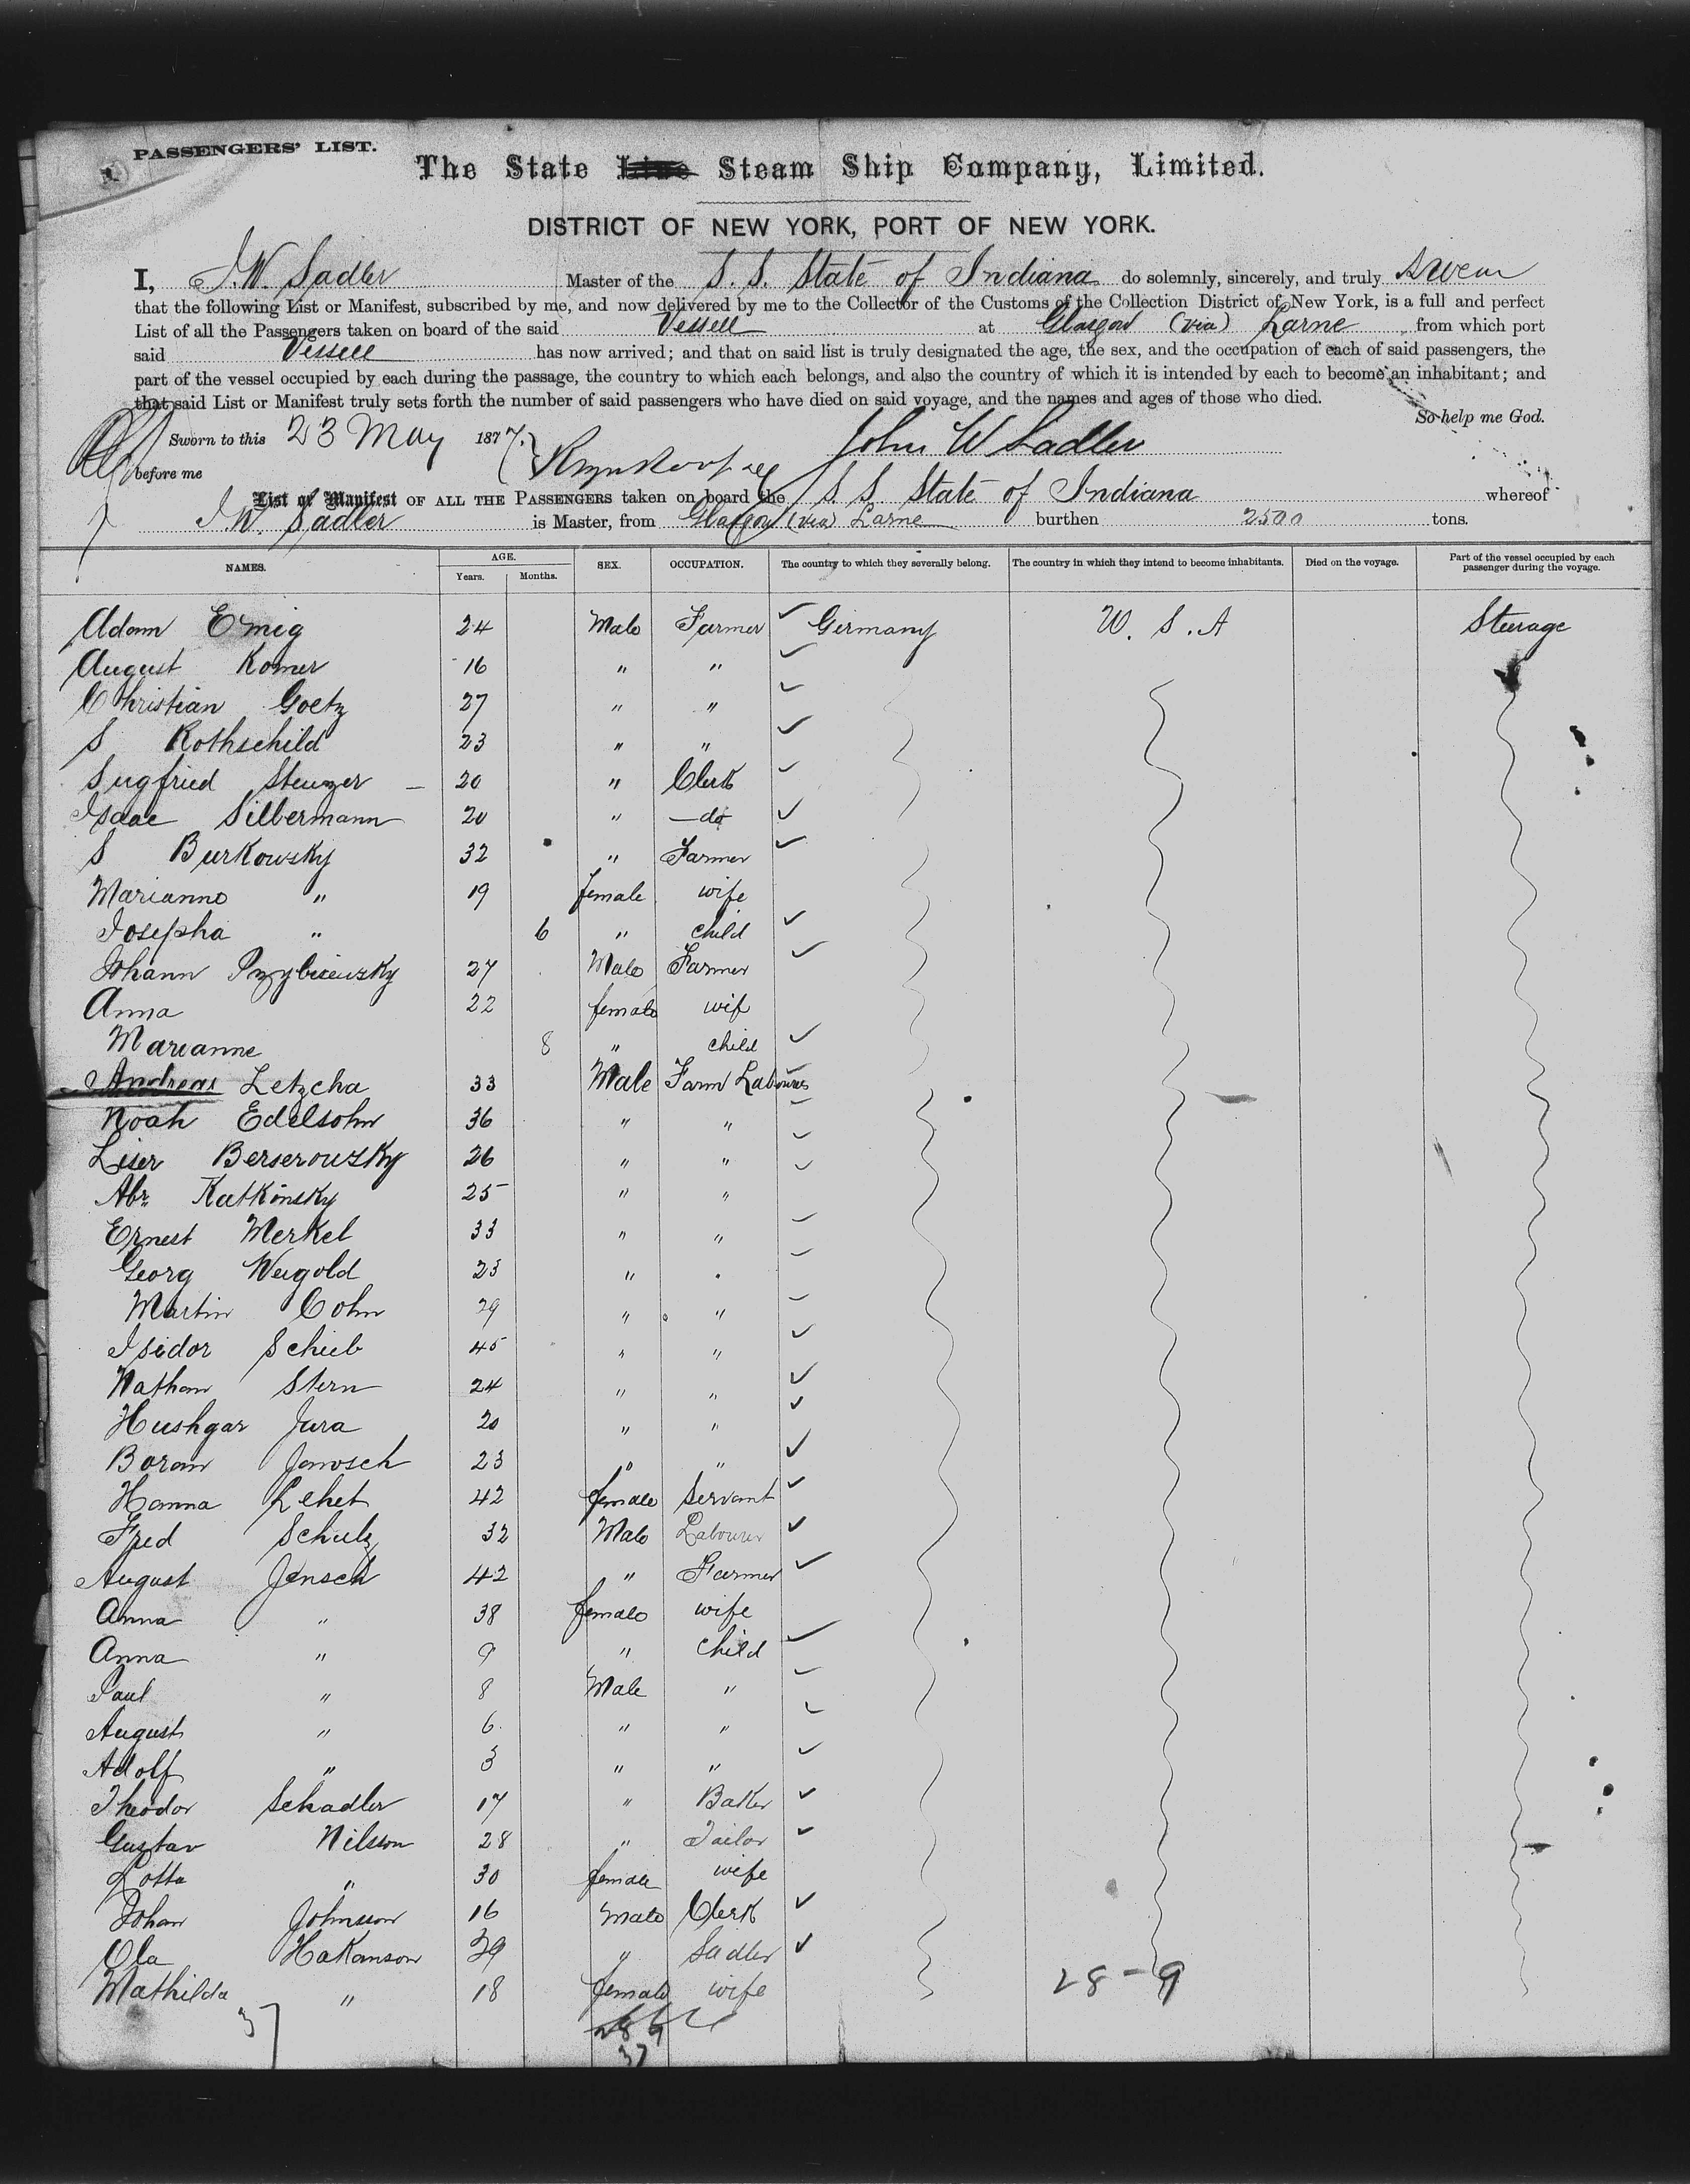 PASSENGERS' LIST.
The State Line Steam Ship Company, Limited.
DISTRICT OF NEW YORK, PORT OF NEW YORK.
I, J. W. Sadler Master of the S. S. State of Indiana do solemnly, sincerely, and truly swear
that the following List or Manifest, subscribed by me, and now delivered by me to the Collector of the Customs of the Collection District of New York, is a full and perfect
List of all the Passengers taken on board of the said Vessell at Glasgow (via) Larne from which port
said Vessell has now arrived; and that on said list is truly designated the age, the sex, and the occupation of each of said passengers, the
part of the vessel occupied by each during the passage, the country to which each belongs, and also the country of which it is intended by each to become an inhabitant; and
that said List or Manifest truly sets forth the number of said passengers who have died on said voyage, and the names and ages of those who died.
So help me God.
Sworn to this 23 May 1877. John W Sadler
before me
List or Manifest OF ALL THE PASSENGERS taken on board the S. S. State of Indiana whereof
J. W. Sadler is Master, from Glasgow (via) Larne burthen 2500 tons.
NAMES. AGE. Years. Months. SEX. OCCUPATION. The country to which they severally belong. The country in which they intend to become inhabitants. Died on the voyage. Part of the vessel occupied by each passenger during the voyage.
Adam Emig 24 Male Farmer Germany U. S. A Steerage
August Komer 16 " "
Christian Goetz 27 " "
S Rothschild 23 " "
Sugfried Stenzer 20 " Clerk
Isaac Silbermann 20 " do
S Burkowsky 32 " Farmer
Marianne " 19 female wife
Josepha " 6 " child
Johann 27 Male Farmer
Anna 22 female wif
Marianne 8 " child
Andreas Letzcha 33 Male Farm Labourer
Noah Edelsohn 36 " "
Liser Berserouzky 26 " "
Abr. Katkinsky 25 " "
Ernest Merkel 33 " "
Georg Weigold 23 "
Martin Cohn 29 " "
Isidor Schieb 45 " "
Nathan Stern 24 " "
Hushgar Jura 20 " "
Boran Janosch 23 " "
Hanna Lehet 42 female Servant
Fred Schulz 32 Male Labourer
August Jensch 42 " Farmer
Anna " 38 female wife
Anna " 9 " Child
Paul " 8 Male "
August " 6 " "
Adolf " 3 " "
Theodor Schadler 17 " Baker
Gustav Nilsson 28 " Tailor
Lotta " 30 female wife
Johan Johnsson 16 Male Clerk
Ola Hakanson 39 " Sadler
Mathilda " 18 female wife 28 - 9
37
28 9
37